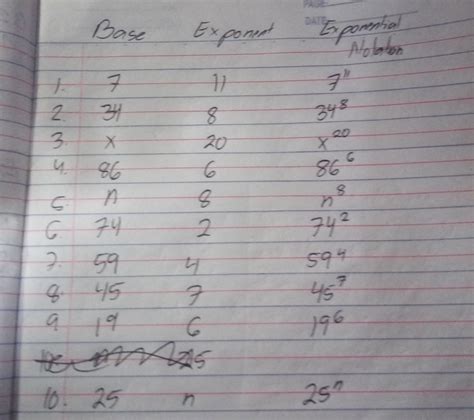 PAGE:
DATE:
Base Exponent Exponential
Notation
1. 7 11 7¹¹
2. 34 8 34⁸
3. x 20 x²⁰
4. 86 6 86⁶
5. n 8 n⁸
6. 74 2 74²
7. 59 4 59⁴
8. 45 7 45⁷
9. 19 6 19⁶
10. 25 n 25ⁿ